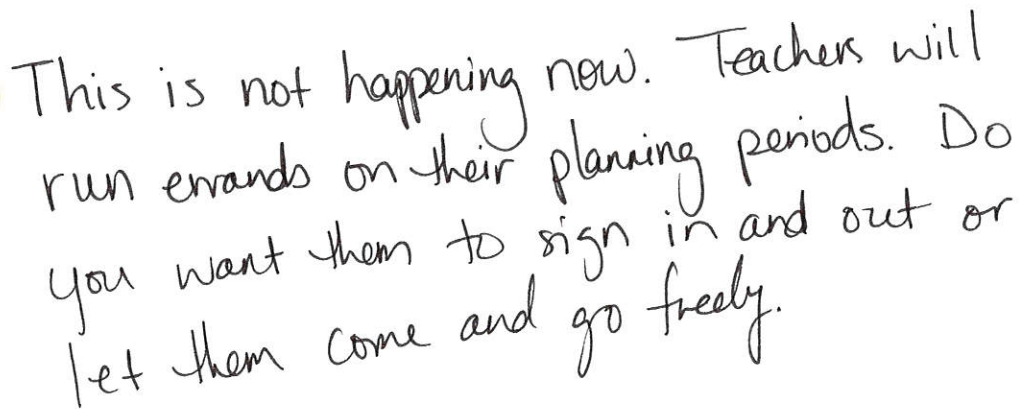 This is not happening now. Teachers will
run errands on their planning periods. Do
you want them to sign in and out or
let them come and go freely.